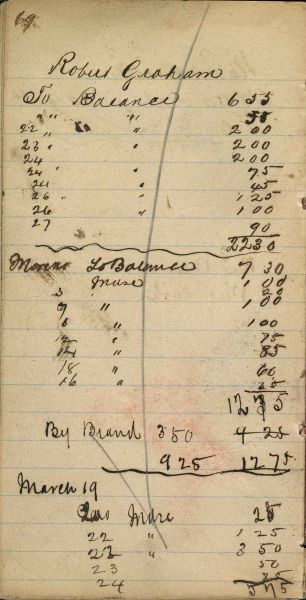 69
Robert Graham
To Balance 6 55
" " 50
22 " " 2 00
23 " " 2 00
24 2 00
24 " 75
24 " 45
26 " " 1 25
26 " 1 00
27 90
22 30
To Balance 7 30
Muse 1 00
3 20
9 " 1 00
6 " 1 00
12 " 75
14 " 85
18 " 60
16 " 25
12
By Brand 3 50 4 25
9 25 12 75
March 19
Muse 25
22 " 1 25
22 " 3 50
23 50
24 25
5 75